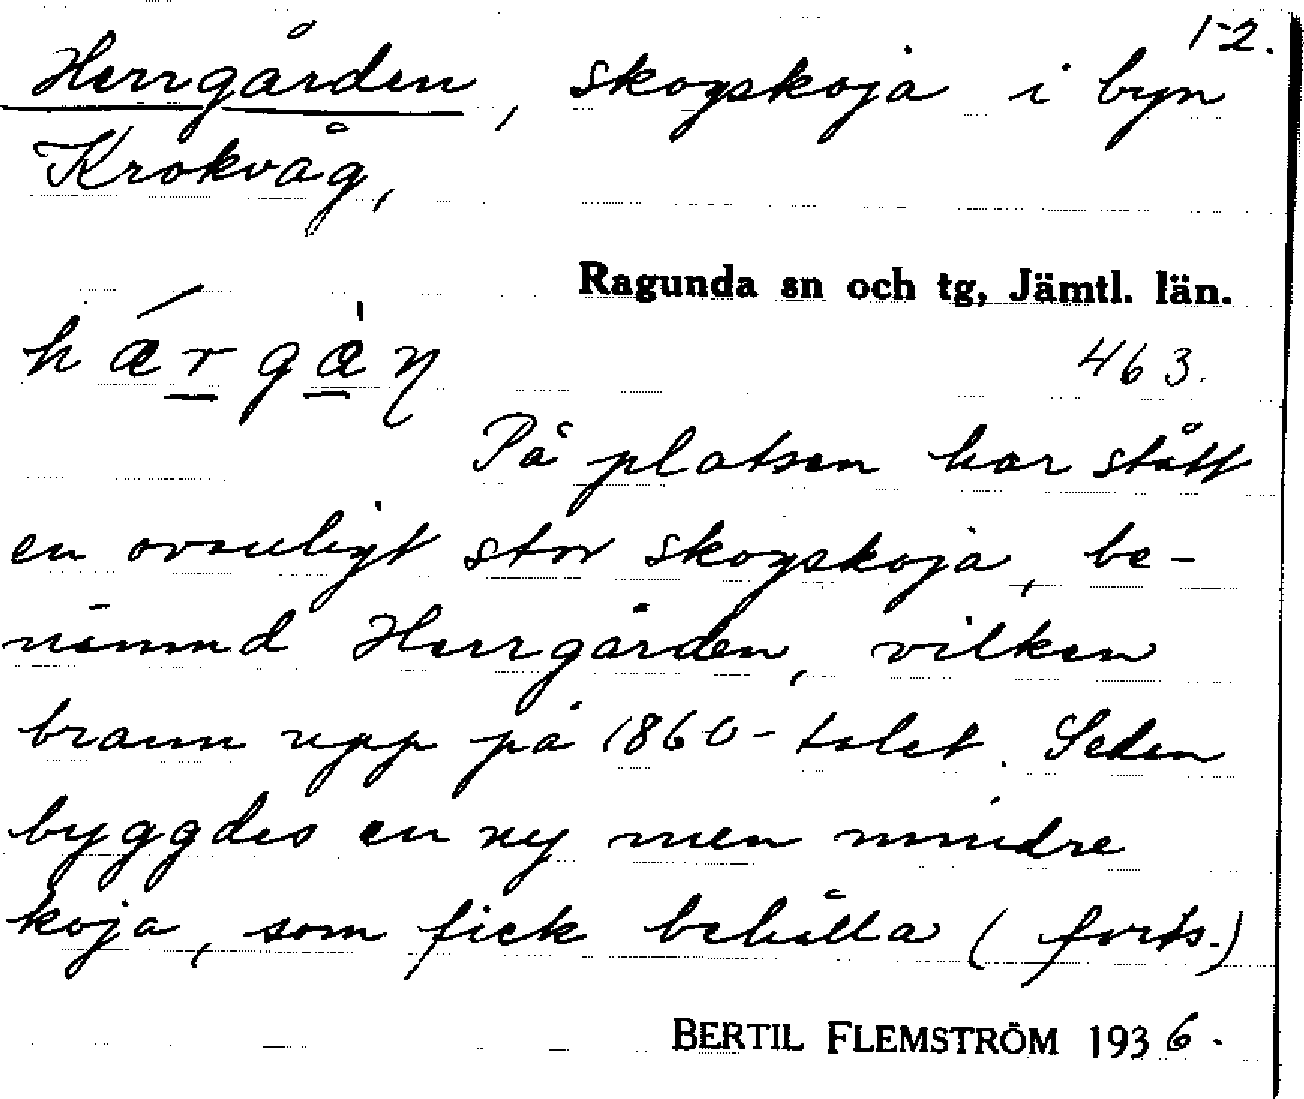 1-2.
Herrgården, skogskoja i byn
Krokvåg,
Ragunda sn och tg, Jämtl. län.
hærgæ̀n
463.
På platsen har stått
en ovanligt stor skogskoja, be-
nämnd Herrgården, vilken
brann upp på 1860-talet. Sedan
byggdes en ny men mindre
koja, som fick behålla (forts.)
BERTIL FLEMSTRÖM 1936.